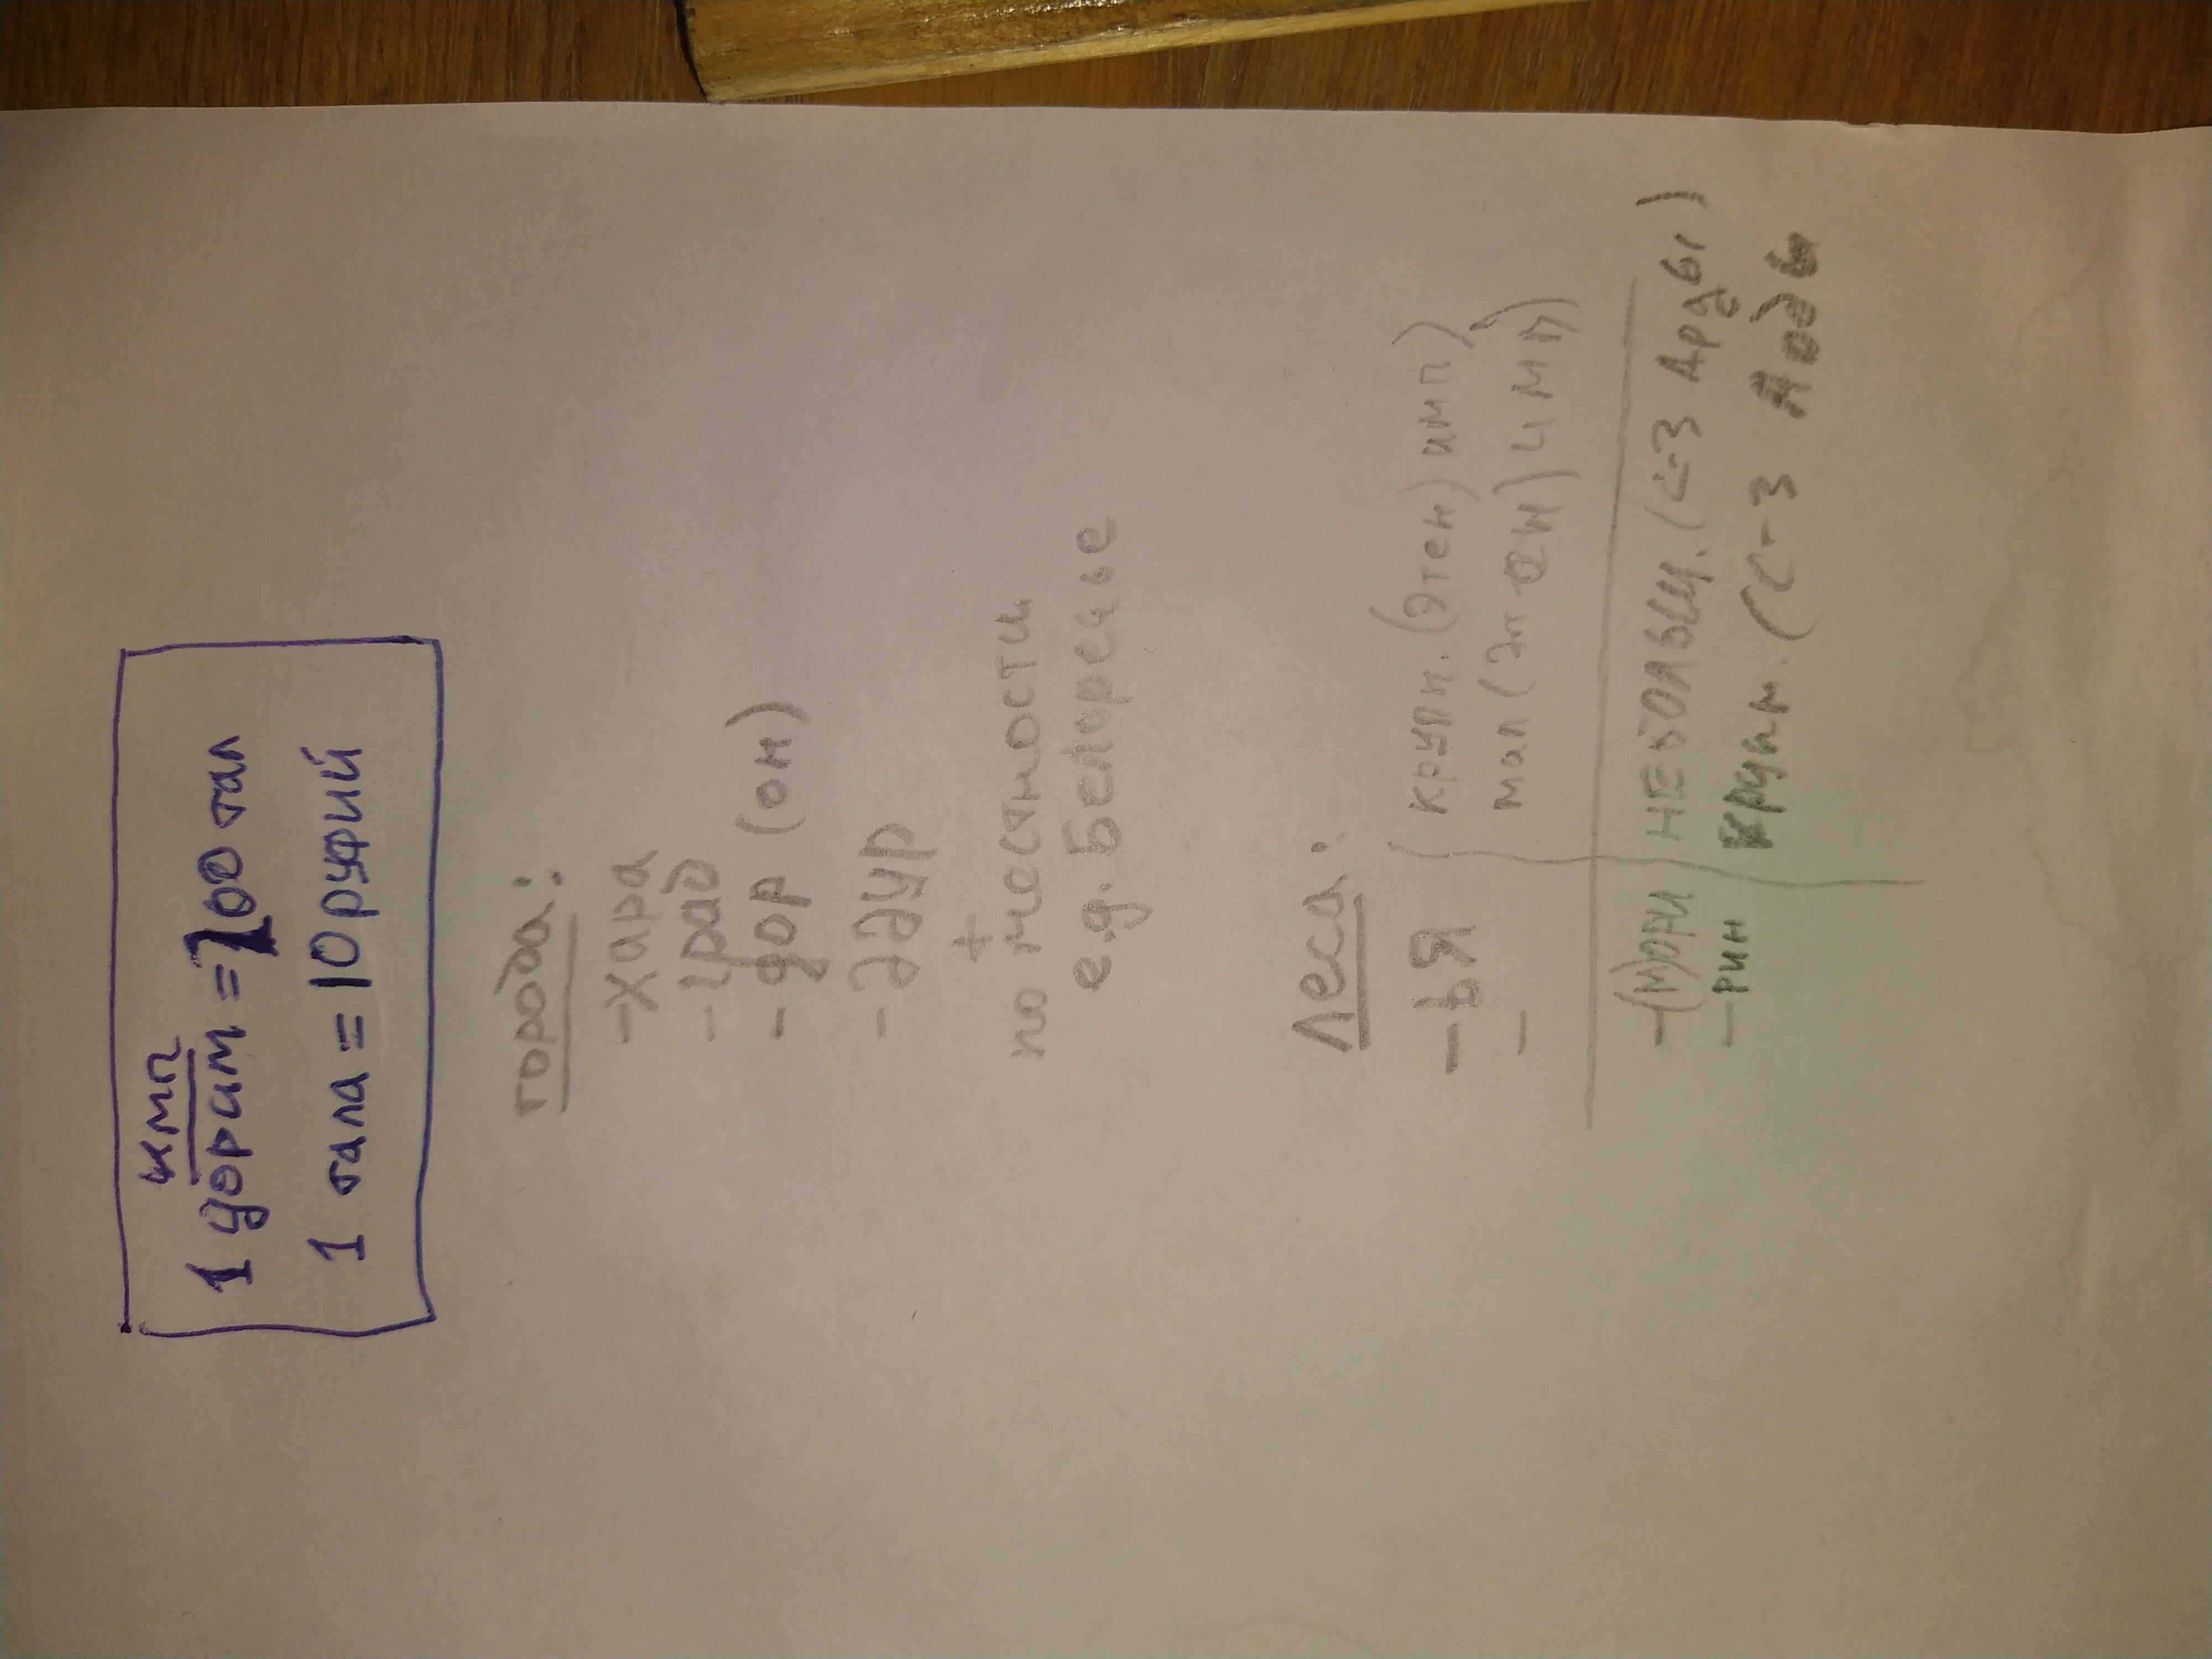 кмп
1 дорим = 100 тал
1 тала = 10 руфий
города:
-хара
-град
-дор (он)
-ддур
+
по местности
e.g. Беларесье
Леса:
-ья (крупн. (этен) имп)
- мал (
-(м)ори небольш. (с-з Арды)
-рин крупн. (с-з